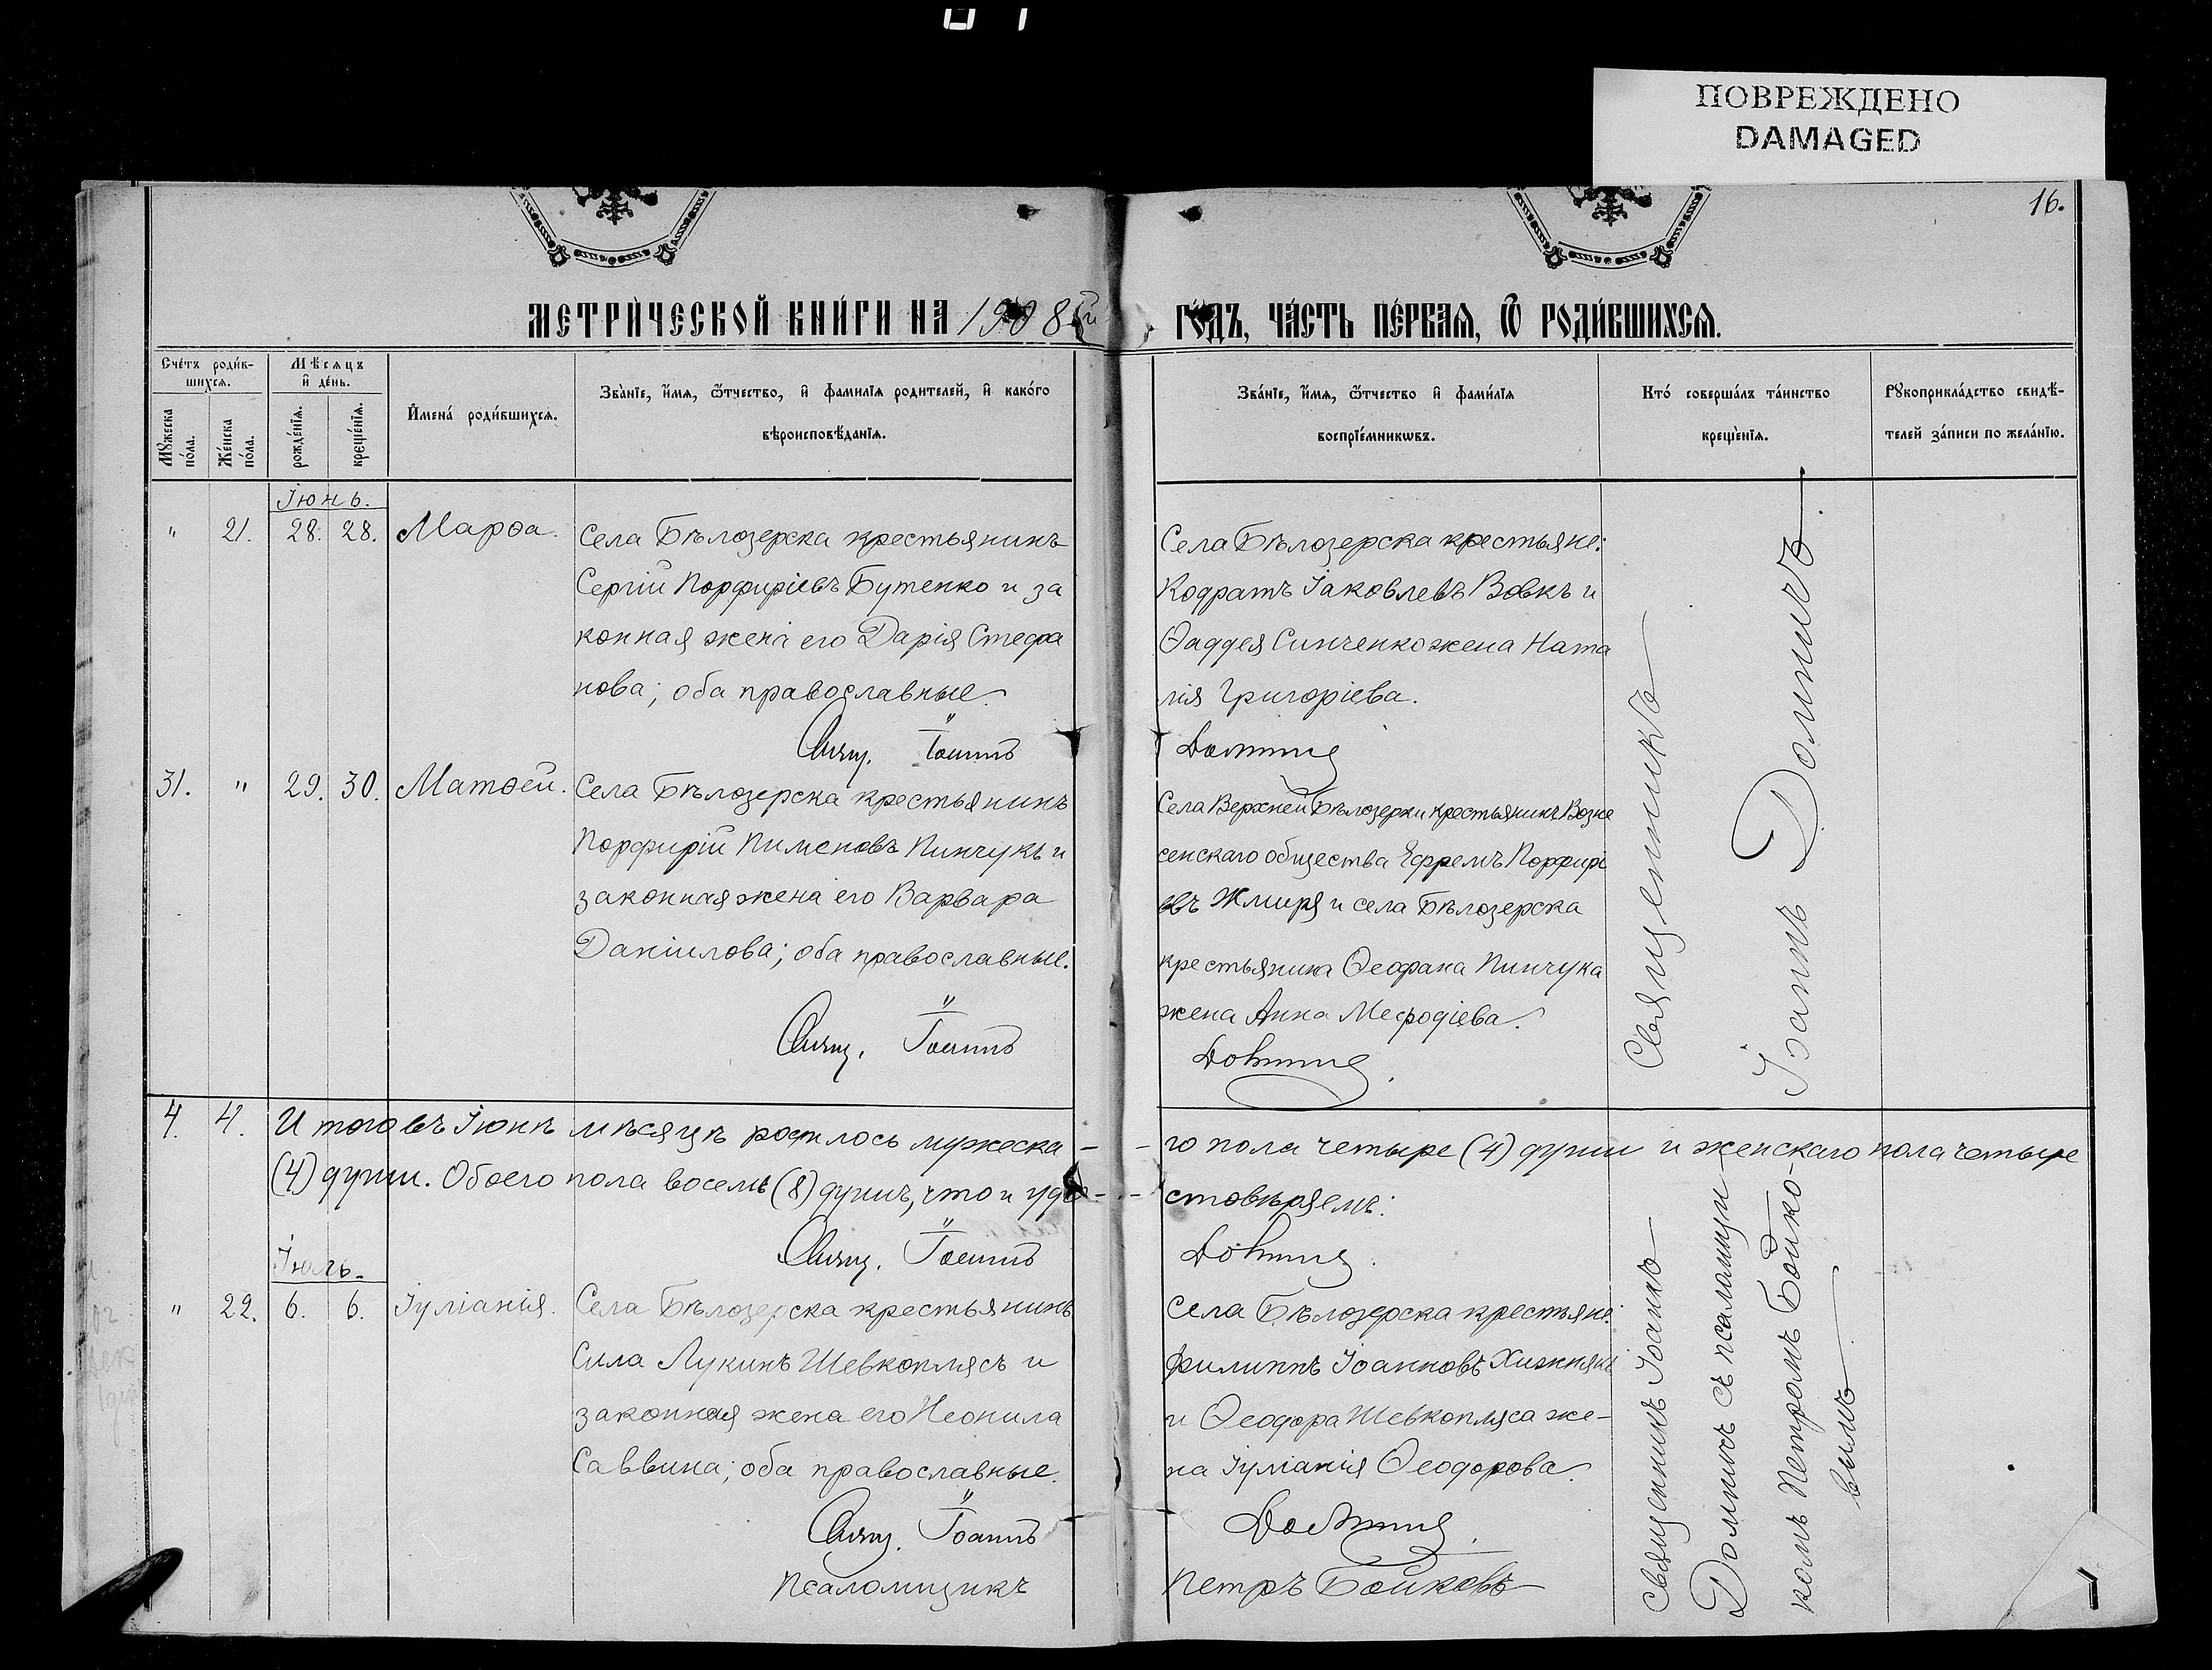 ПОВРЕЖДЕНО
DAMAGED
16.
МЕТРИЧЕСКОЙ КНИГИ НА 1908й
ГОДЪ, ЧАСТЬ ПЕРВАЯ, Ѿ РОДИВШИХСЯ.
Счетъ родив-
шихся.
Мужеска пола.
Женска пола.
Мѣсяцъ
и день.
рожденія.
крещенія.
Имена родившихся.
Званіе, имя, ѿчество, и фамилія родителей, и какого
вѣроисповѣданія.
Званіе, имя, ѿчество и фамилія
воспріемниковъ.
Кто совершалъ таинство
крещенія.
Рукоприкладство свидѣ-
телей записи по желанію.
Іюнь.
" 21. 28. 28. Марѳа.
Села Бѣлозерска крестьянинъ
Сергій Порфиріевъ Бутенко и за
конная жена его Дарія Стефа
нова; оба православные.
Свящ. Іоаннъ
Села Бѣлозерска крестьяне:
Кодратъ Іаковлевъ Вовкъ и
Ѳаддея Синченко жена Ната
лія Григоріева.
Долтинъ
31. " 29. 30. Матѳей.
Села Бѣлозерска крестьянинъ
Порфирій Пименовъ Пинчукъ и
законная жена его Варвара
Даніилова; оба православные.
Свящ. Іоаннъ
Села Верхней Бѣлозерки крестьянинъ Возне
сенскаго общества Ефремъ Порфирі
евъ Жмиря и села Бѣлозерска
крестьянина Ѳеофана Пинчука
жена Анна Меѳодіева.
Священникъ
Іоаннъ
4. 4. Итого въ Іюнѣ мѣсяцѣ родилось мужеска-
-го пола четыре (4) души и женскаго пола четыре
(4) души. Обоего пола восемь (8) душъ, что и удо-
-стовѣряемъ:
Свящ. Іоаннъ
Іюль.
" 22. 6. 6. Іуліанія.
Села Бѣлозерска крестьянинъ
Сила Лукинъ Шевкоплясъ и
законная жена его Неонила
Саввина; оба православные.
Свящ. Іоаннъ
Псаломщикъ
Села Бѣлозерска крестьяне:
Филиппъ Іоанновъ Хижнякъ
и Ѳеодора Шевкопляса же-
на Іуліанія Ѳеодорова.
Петръ Бойковъ
Священникъ Іоаннъ
съ псаломщи
комъ Петромъ Бойко-
вымъ